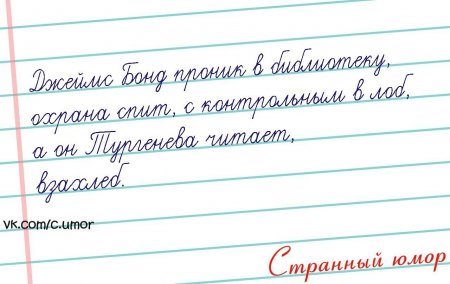 Джеймс Бонд проник в библиотеку,
охрана спит, с контрольным в лоб,
а он Тургенева читает,
взахлеб.
vk.com/c.umor
Странный юмор